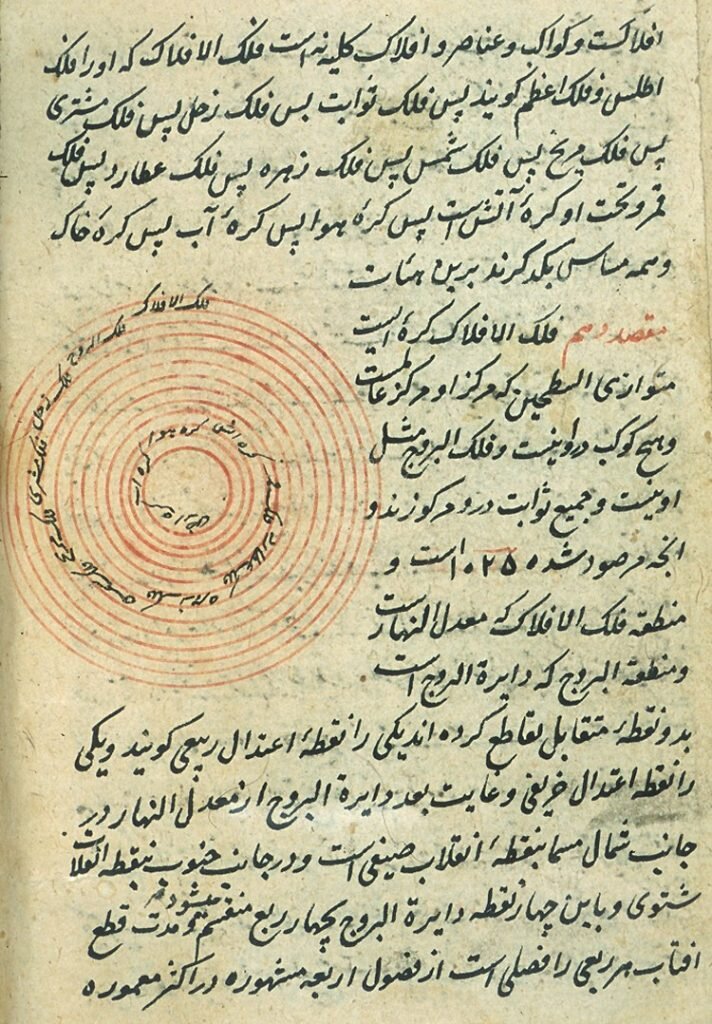 افلاکست و کواکب و عناصر و افلاک کلیه نه است فلک الافلاک که او را فلک
اطلس و فلک اعظم کویند پس فلک ثوابت پس فلک زحل پس فلک مشتری
پس فلک مریخ پس فلک شمس پس فلک زهره پس فلک عطارد پس فلک
قمر و تحت او کرهٔ آتش است پس کرهٔ هوا پس کرهٔ آب پس کرهٔ خاک
و همه مماس یکدکرند برین هیئات
مقصد دهم فلک الافلاک کرهٔ ایست
متوازی السطحین که مرکز او مرکز عالمست
و هیچ کوکب درو نیست و فلک البروج مثل
اوینست و جمیع ثوابت درو مرکوزند و
انچه مرصود شده ۱۰۲۵ است و
منطقه فلک الافلاک که معدل النهار است
و منطقة البروج که دایرة البروج است
بدو نقطهٔ متقابل تقاطع کرده اند یکی را نقطهٔ اعتدال ربیعی کویند و یکی
را نقطه اعتدال خریفی و غایت بعد دایرة البروج از معدل النهار در
جانب شمال مسما بنقطهٔ انقلاب صیفی است و در جانب جنوب بنقطه انقلاب
شتوی و باین چهار نقطه دایرة البروج بچهار ربع منقسم میشود و مدت قطع
افتاب هر ربعی را فصلی است از فصول اربعه مشهوره در اکثر معموره
فلک الافلاک
فلک البروج
فلک زحل
فلک مشتری
فلک مریخ
فلک شمس
فلک زهره
فلک عطارد
فلک قمر
کره اتش
کره هوا
کره اب